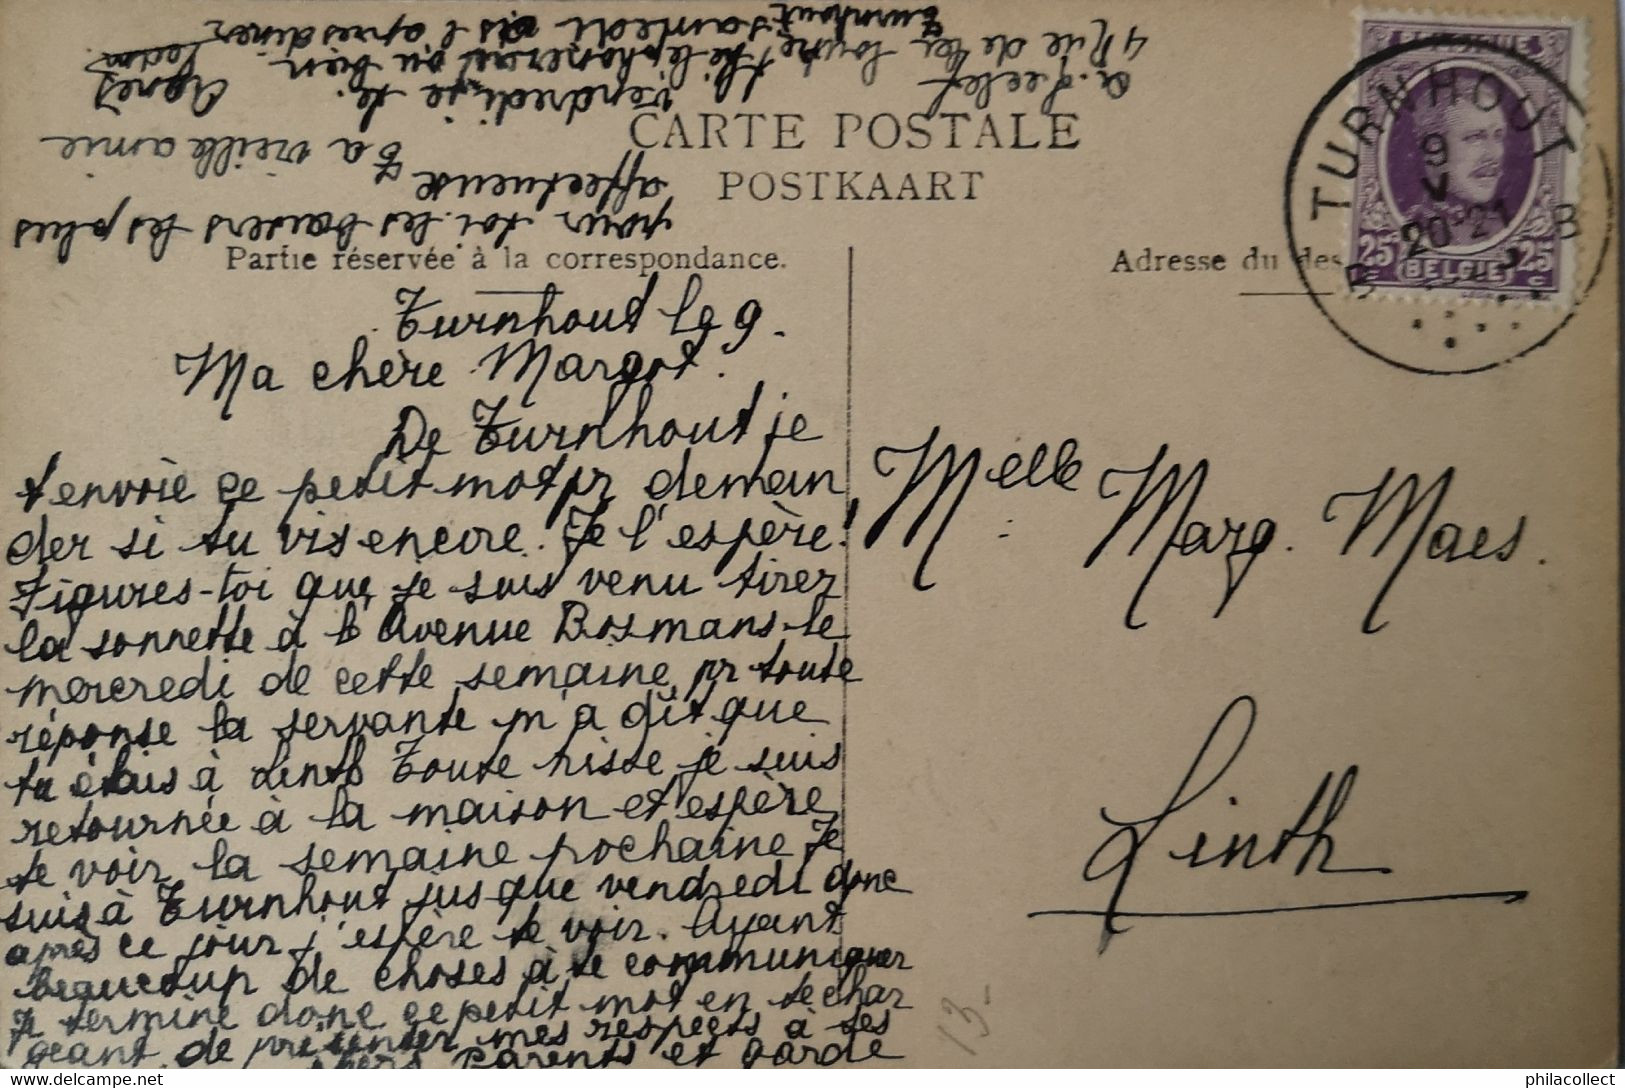 CARTE POSTALE
POSTKAART
Partie réservée à la correspondance.
Adresse du des
BELGIQUE
25 BELGIE 25
TURNHOUT
9 V
20-21
B
Turnhout le 9.
Ma chère Margot.
De Turnhout je
t'envoie ce petit mot pr deman
der si tu vis encore. Je l'espère!
Figures-toi que je suis venu tirer
la sonnette à l'Avenue Bosmans le
mercredi de cette semaine pr toute
réponse la servante m'a dit que
tu étais à Linth Toute triste je suis
retournée à la maison et espère
te voir la semaine prochaine Je
suis à Turnhout jusque vendredi donc
après ce jour j'espère te voir. Ayant
beaucoup de choses à te communiquer
Je termine donc ce petit mot en te char
geant de présenter mes respects à tes
chers Parents et garde
pour toi les baisers les plus
affectueux
Ta vieille amie
Agnes
vendredi, je te
téléphonerai ou bien
samedi dès l'après diner
4 Rue de
Turnhout
Melle Marg. Maes.
Linth
13-
philacollect.com